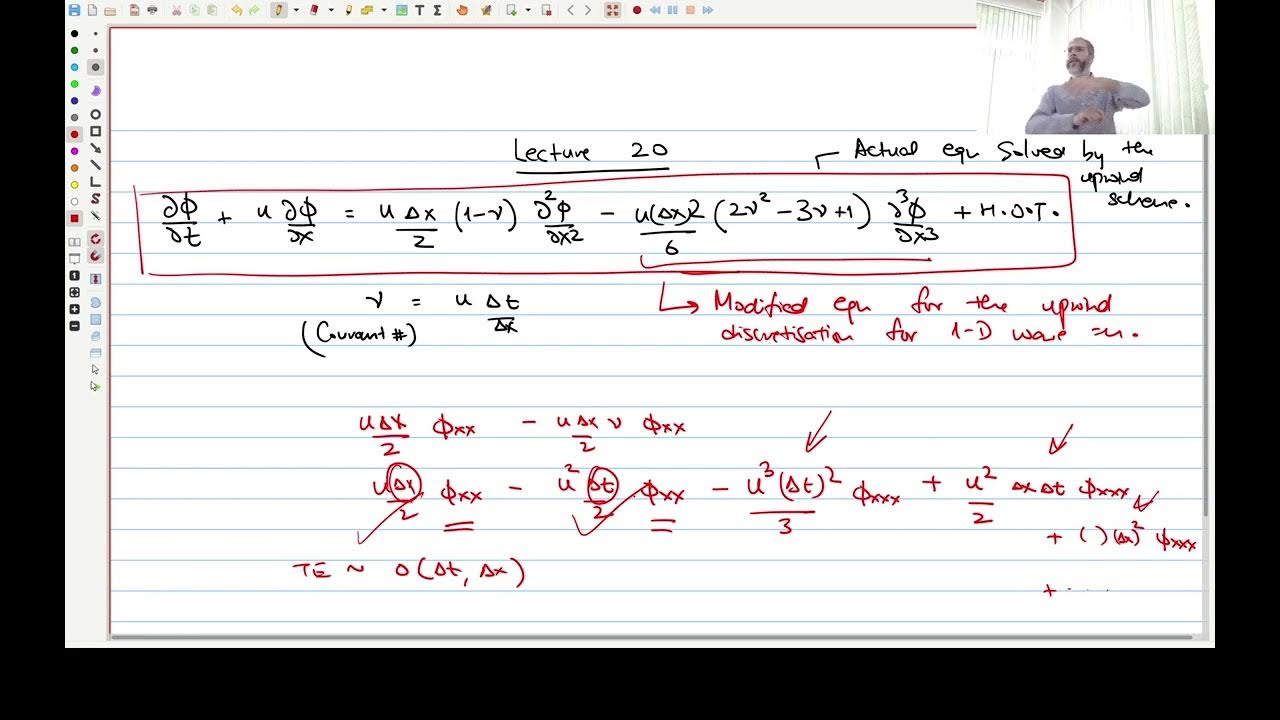 Lecture 20
Actual eqn solved by the
upwind
scheme.
∂Φ/∂t + u ∂Φ/∂x = u Δx/2 (1-ν) ∂²Φ/∂x2 - u(Δx)2/6 (2ν² - 3ν + 1) ∂³Φ/∂x3 + H.O.T.
ν = u Δt/Δx
(Courant #)
↳ Modified eqn for the upwind
discretisation for 1-D wave =n.
uΔx/2 Φxx - uΔx ν/2 Φxx
uΔx/2 Φxx - u² Δt/2 Φxx - u³(Δt)²/3 Φxxx + u²/2 Δx Δt Φxxx
+ ( )(Δx)² Φxxx
TE ~ O(Δt, Δx)
+ .....